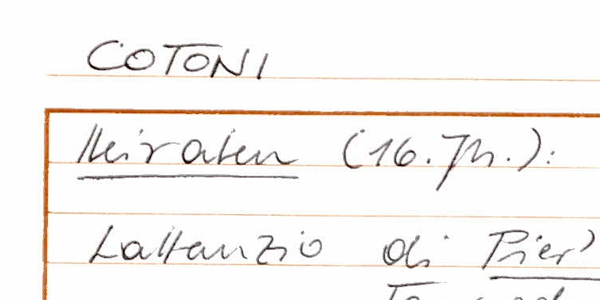 COTONI
Heiraten (16. Jh.):
Lattanzio di Pier'